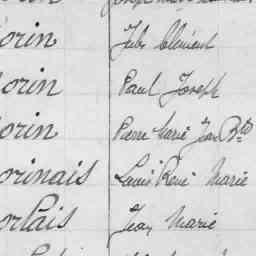 orin Jules Clément
orin Paul Joseph
orin Pierre Marie Jean Bte
orinais Louis René Marie
orlais Jean Marie